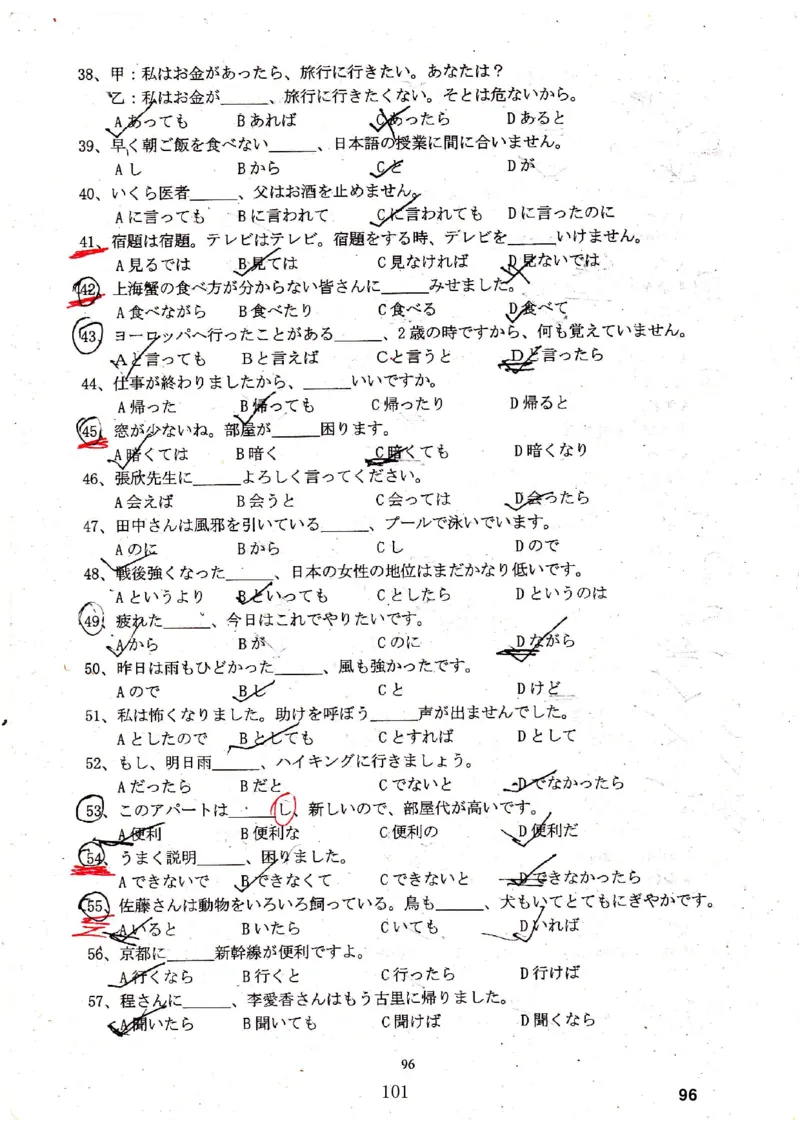 38、甲：私はお金があったら、旅行に行きたい。あなたは？
乙：私はお金が_____、旅行に行きたくない。そとは危ないから。
Aあっても　Bあれば　Cあったら　Dあると
39、早く朝ご飯を食べない_____、日本語の授業に間に合いません。
Aし　Bから　Cと　Dが
40、いくら医者_____、父はお酒を止めません。
Aに言っても　Bに言われて　Cに言われても　Dに言ったのに
41、宿題は宿題。テレビはテレビ。宿題をする時、テレビを_____いけません。
A見るでは　B見ては　C見なければ　D見ないでは
42、上海蟹の食べ方が分からない皆さんに_____みせました。
A食べながら　B食べたり　C食べる　D食べて
43、ヨーロッパへ行ったことがある_____、2歳の時ですから、何も覚えていません。
Aと言っても　Bと言えば　Cと言うと　Dと言ったら
44、仕事が終わりましたから、_____いいですか。
A帰った　B帰っても　C帰ったり　D帰ると
45、窓が少ないね。部屋が_____困ります。
A暗くては　B暗く　C暗くても　D暗くなり
46、張欣先生に_____よろしく言ってください。
A会えば　B会うと　C会っては　D会ったら
47、田中さんは風邪を引いている_____、プールで泳いでいます。
Aのに　Bから　Cし　Dので
48、戦後強くなった_____、日本の女性の地位はまだかなり低いです。
Aというより　Bといっても　Cとしたら　Dというのは
49、疲れた_____、今日はこれでやりたいです。
Aから　Bが　Cのに　Dながら
50、昨日は雨もひどかった_____、風も強かったです。
Aので　Bし　Cと　Dけど
51、私は怖くなりました。助けを呼ぼう_____声が出ませんでした。
Aとしたので　Bとしても　Cとすれば　Dとして
52、もし、明日雨_____、ハイキングに行きましょう。
Aだったら　Bだと　Cでないと　Dでなかったら
53、このアパートは_____し、新しいので、部屋代が高いです。
A便利　B便利な　C便利の　D便利だ
54、うまく説明_____、困りました。
Aできないで　Bできなくて　Cできないと　Dできなかったら
55、佐藤さんは動物をいろいろ飼っている。鳥も_____、犬もいてとてもにぎやかです。
Aいると　Bいたら　Cいても　Dいれば
56、京都に_____新幹線が便利ですよ。
A行くなら　B行くと　C行ったら　D行けば
57、程さんに_____、李愛香さんはもう古里に帰りました。
A聞いたら　B聞いても　C聞けば　D聞くなら
96
101
96